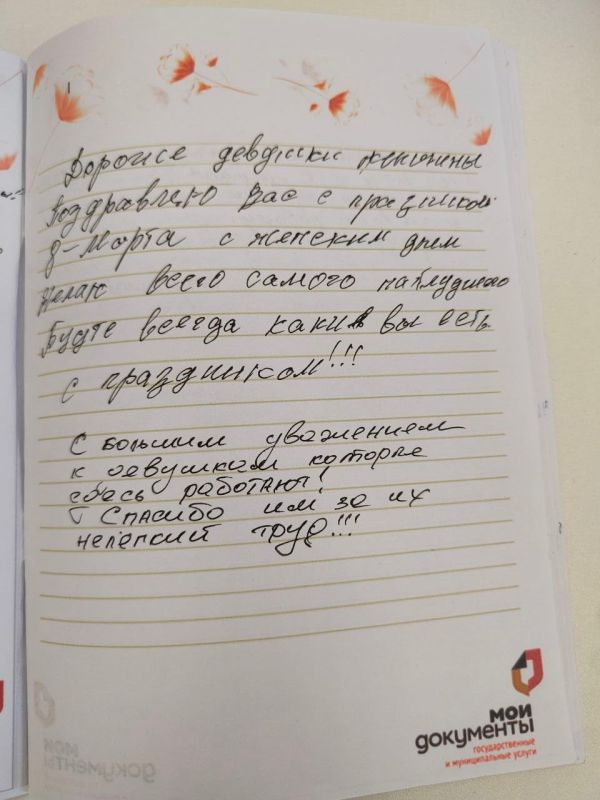 Дорогие девушки женщины
Поздравляю Вас с праздником
8-Марта с женским днем
Желаю всего самого наилудшего
Будте всегда каким вы есть.
с праздником!!!
С большим уважением
к девушкам которые
здесь работают!
Спасибо им за их
нелегкий труд!!!
мои
документы
государственные
и муниципальные услуги